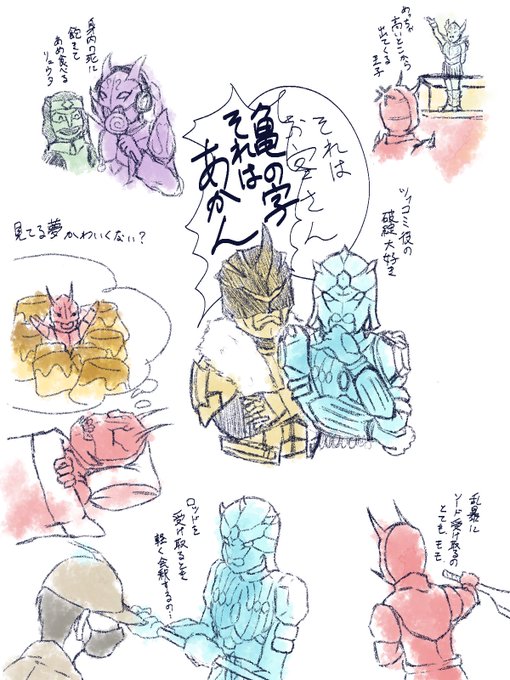 身内の死に
飽きて
あめ食べる
リュウタ
めっちゃ
高いとこから
出てくる
王子
それは
お字さん
亀の字
それは
あかん
ツッコミ役の
破綻大好き
見てる夢かわいくない?
ロッドを
受け取るとき
軽く会釈するの。
乱暴に
ソード受け取るの
とても、モモ